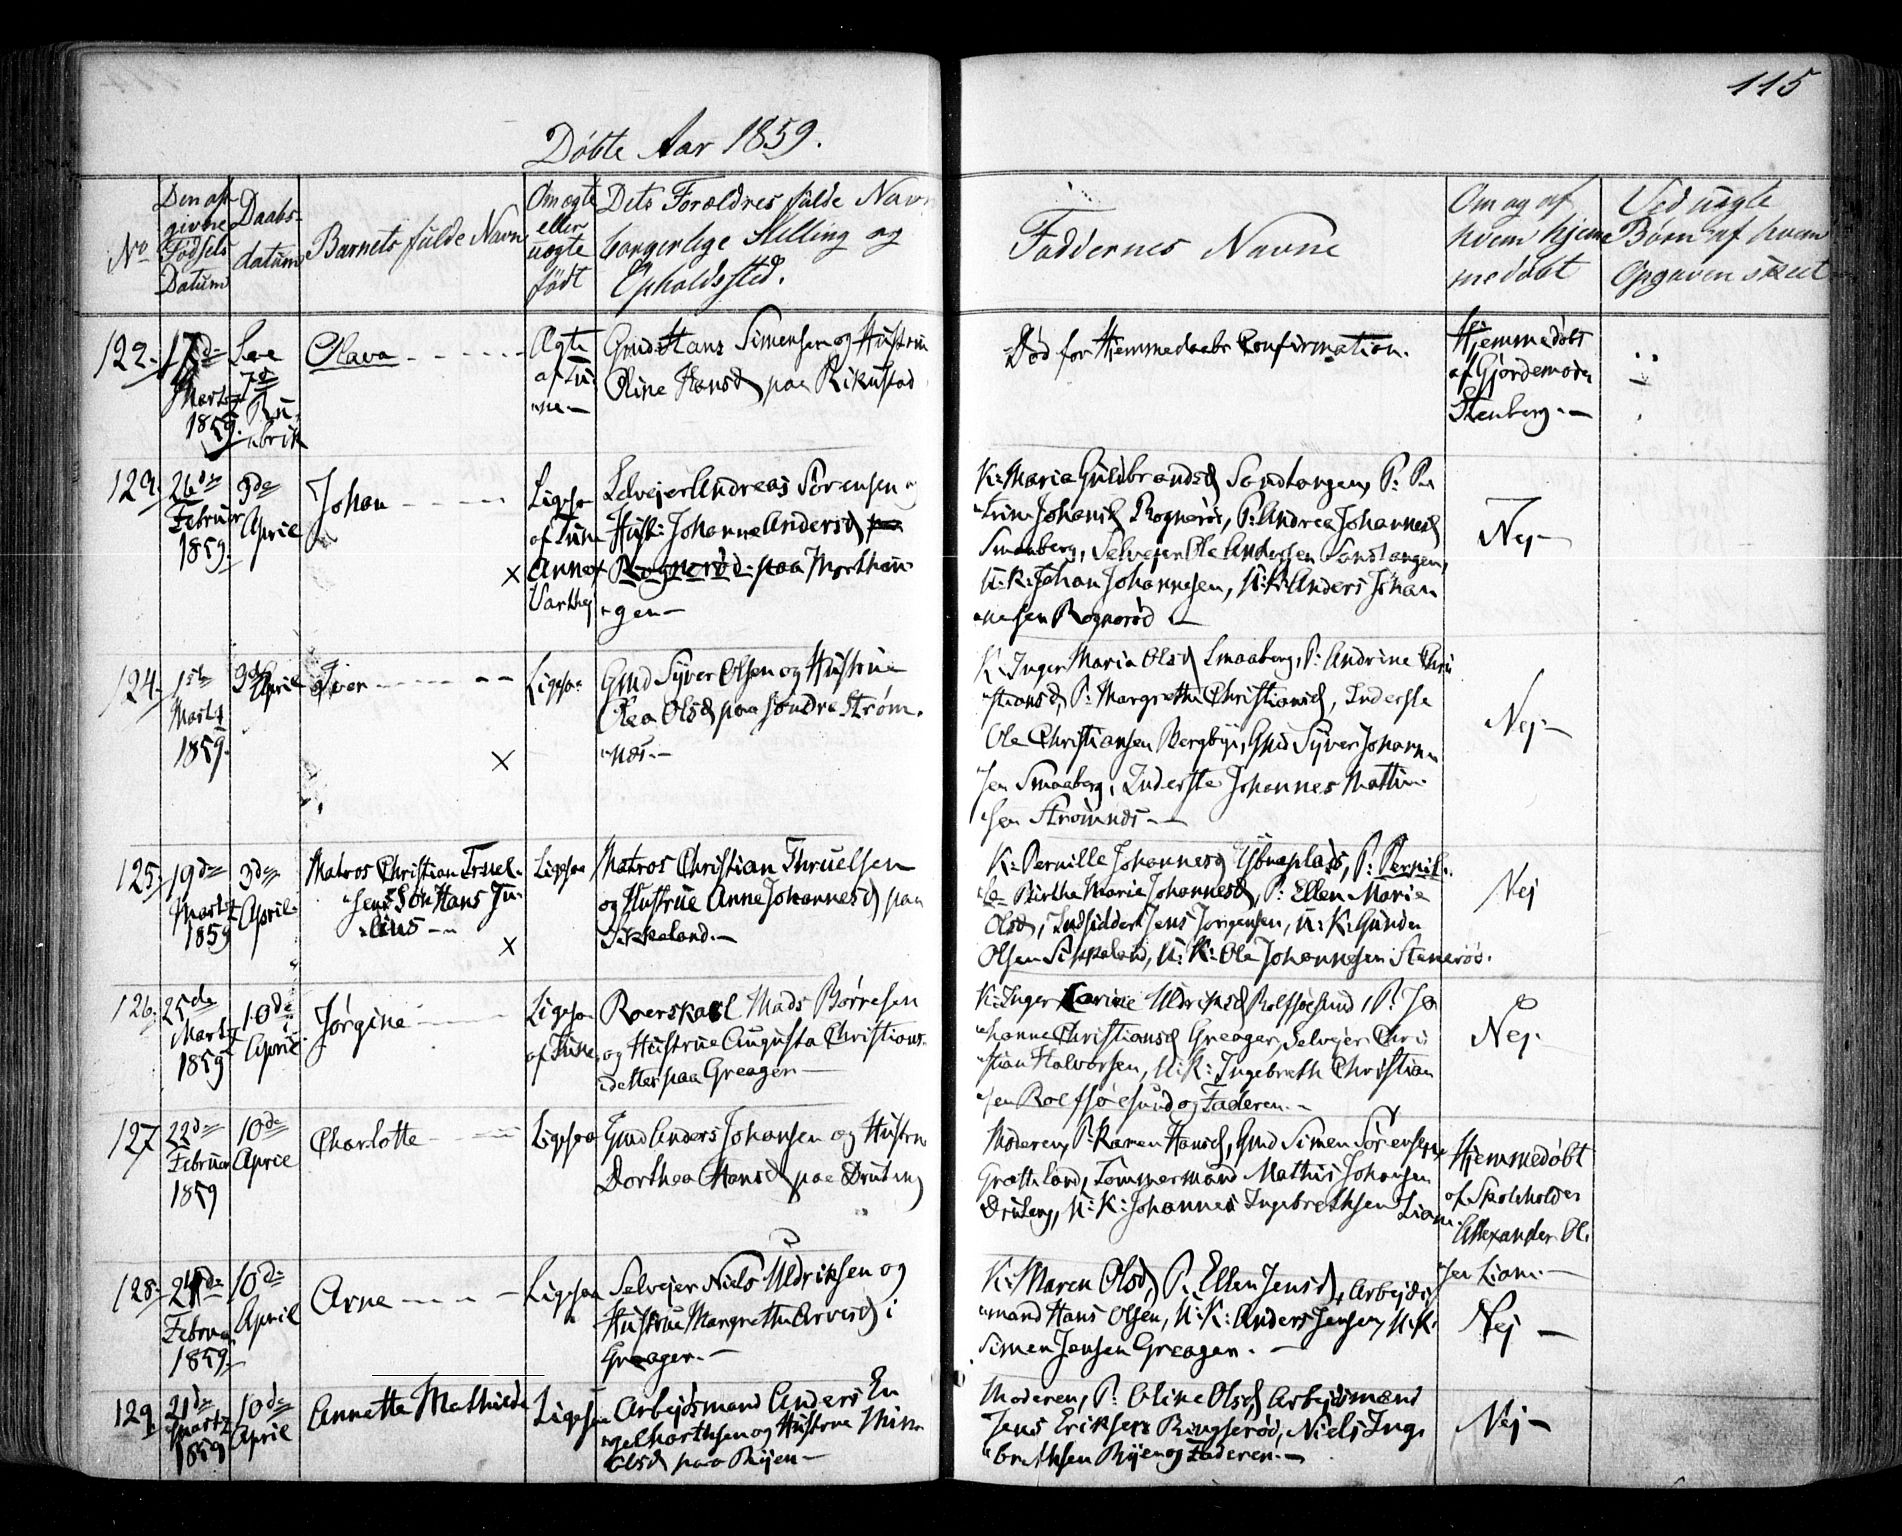 115
Döbte Aar 1859.
No
Den an-
givne
Födsels
Datum
Daabs-
datum
Barnets fulde Navn
Om ægte
eller
uægte
födt
Dets Forældres fulde Navn
borgerlige Stilling og
Opholdssted.
Faddernes Navne
Om og af
hvem hjemme
medöbt
Ved uægte
Börn af hvem
Opgaven skeet
122.
17de
Marts
1859.
See
7de
Ru-
brik
Olava
Ægte
af Tu-
ne
Gmd Hans Simensen og Hustrue
Oline Hansd paa Rikustad
Död for Hjemmedaabs Confirmation.
Hjemmedöbt
af Gjordemoder
Stenberg.
123.
26de
Februar
1859.
3de
April
Johan
Ligesaa
af Tune
Annex
Varteig
Selvejer Andreas Sörensen og
Hust: Johanne Andersd paa
Rognerød paa Morthau-
gen
K: Maria Guldbrandsd Sandtangen, P: Pe-
trine Johansd Rognerös, P: Andrea Johannesd
Smaaberg, Selvejer Ole Andersen Sandtangen,
U:K: Johan Johannesen, U:K: Anders Johan-
nesen Rognerød
Nej
124.
1ste
Marts
1859.
3de April
Iver
Ligesaa
Gmd Syver Olsen og Hustrue
Olea Olsd paa söndre Ström-
næs.
K: Inger Maria Olsd Smaaberg, P: Andrine Chri-
stiansd, P: Margrethe Christiansd, Inderste
Ole Christiansen Bergbye, Gmd Syver Johanne-
sen Smaaberg, Inderste Johannes Mathie-
sen Strömnæs
Nej
125.
19de
Marts
1859
3de
April
Matros Christian Truel-
sens Sön Hans Ju-
lius
Ligesaa
Matros Christian Thruelsen
og Hustrue Anne Johannesd paa
Sikkeland.
K: Pernille Johannesd Ysbnæplads, P: Pernil-
le Birthe Marie Johannesd, P: Ellen Marie
Olsd, Indsidder Jens Jörgensen, U:K: Gunder
Olsen Sikkeland, U:K: Ole Johannesen Stenerös.
Nej
126.
25de
Marts
1859
10de
April
Jörgine
Ligesaa
af Tune
Roerskarl Mads Börresen
og Hustrue Augusta Christians-
datter paa Greager
K: Inger Karine Uldriksd Rolfsöesund, P: Jo-
hanne Christiansd Greager, Selvejer Chri-
stian Halvorsen, U:K: Ingebreth Christian-
sen Rolfsöesund og Faderen.
Nej
127
22de
Februar
1859
10de
April
Charlotte
Ligesaa
Gmd Anders Johansen og Hustrue
Dorthea Hansd paa Druteng
Moderen, P: Karen Hansd, Gmd Simen Sörensen,
Grætteland, Tömmermand Mathis Johansen
Druteng, U:K: Johannes Ingebrethsen Liane
Hjemmedöbt
af Skoleholder
Alexander Ol-
sen Liane
128.
24de
Februar
1859
10de
April
Arne
Ligesaa
Selvejer Niels Uldriksen og
Hustrue Margrethe Arvesd i
Greager.
K: Maren Olsd, P: Ellen Jensd, Arbejds-
mand Hans Olsen, U:K: Anders Jensen, U:K:
Simen Jensen Greager.
Nej
129.
21de
Marts
1859
10de
April
Annette Mathilde
Ligesaa
Arbejdsmand Anders En-
gelbrethsen og Hustrue
Olsd paa Ryen
Moderen, P: Oline Olsd, Arbejdsmænd
Jens Eriksen Ringseröd, Niels Inge-
brethsen Ryen og Faderen.
Nej